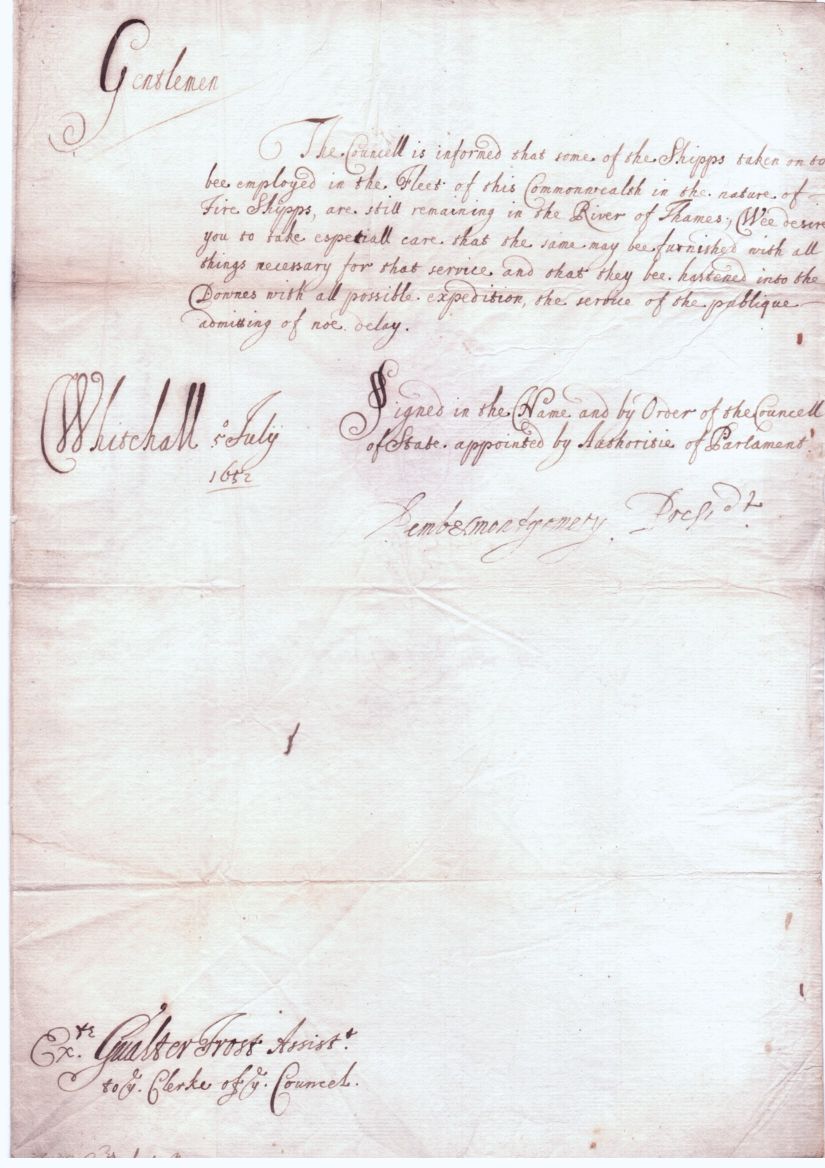 Gentlemen
The Councell is informed that some of the Shipps taken on to
bee employed in the Fleet of this Commonwealth in the nature of
Fire Shipps, are still remaining in the River of Thames; Wee desire
you to take especiall care that the same may bee furnished with all
things necessary for that service and that they bee hastened into the
Downes with all possible expedition, the service of the publique
admitting of noe delay.
Whitehall 5º July
1652
Signed in the Name and by Order of the Councell
of State appointed by Authoritie of Parlament
Pemb&montgomery Presidt
Extr. Gualter Frost Assistt.
to ye. Clerke of ye. Councel.